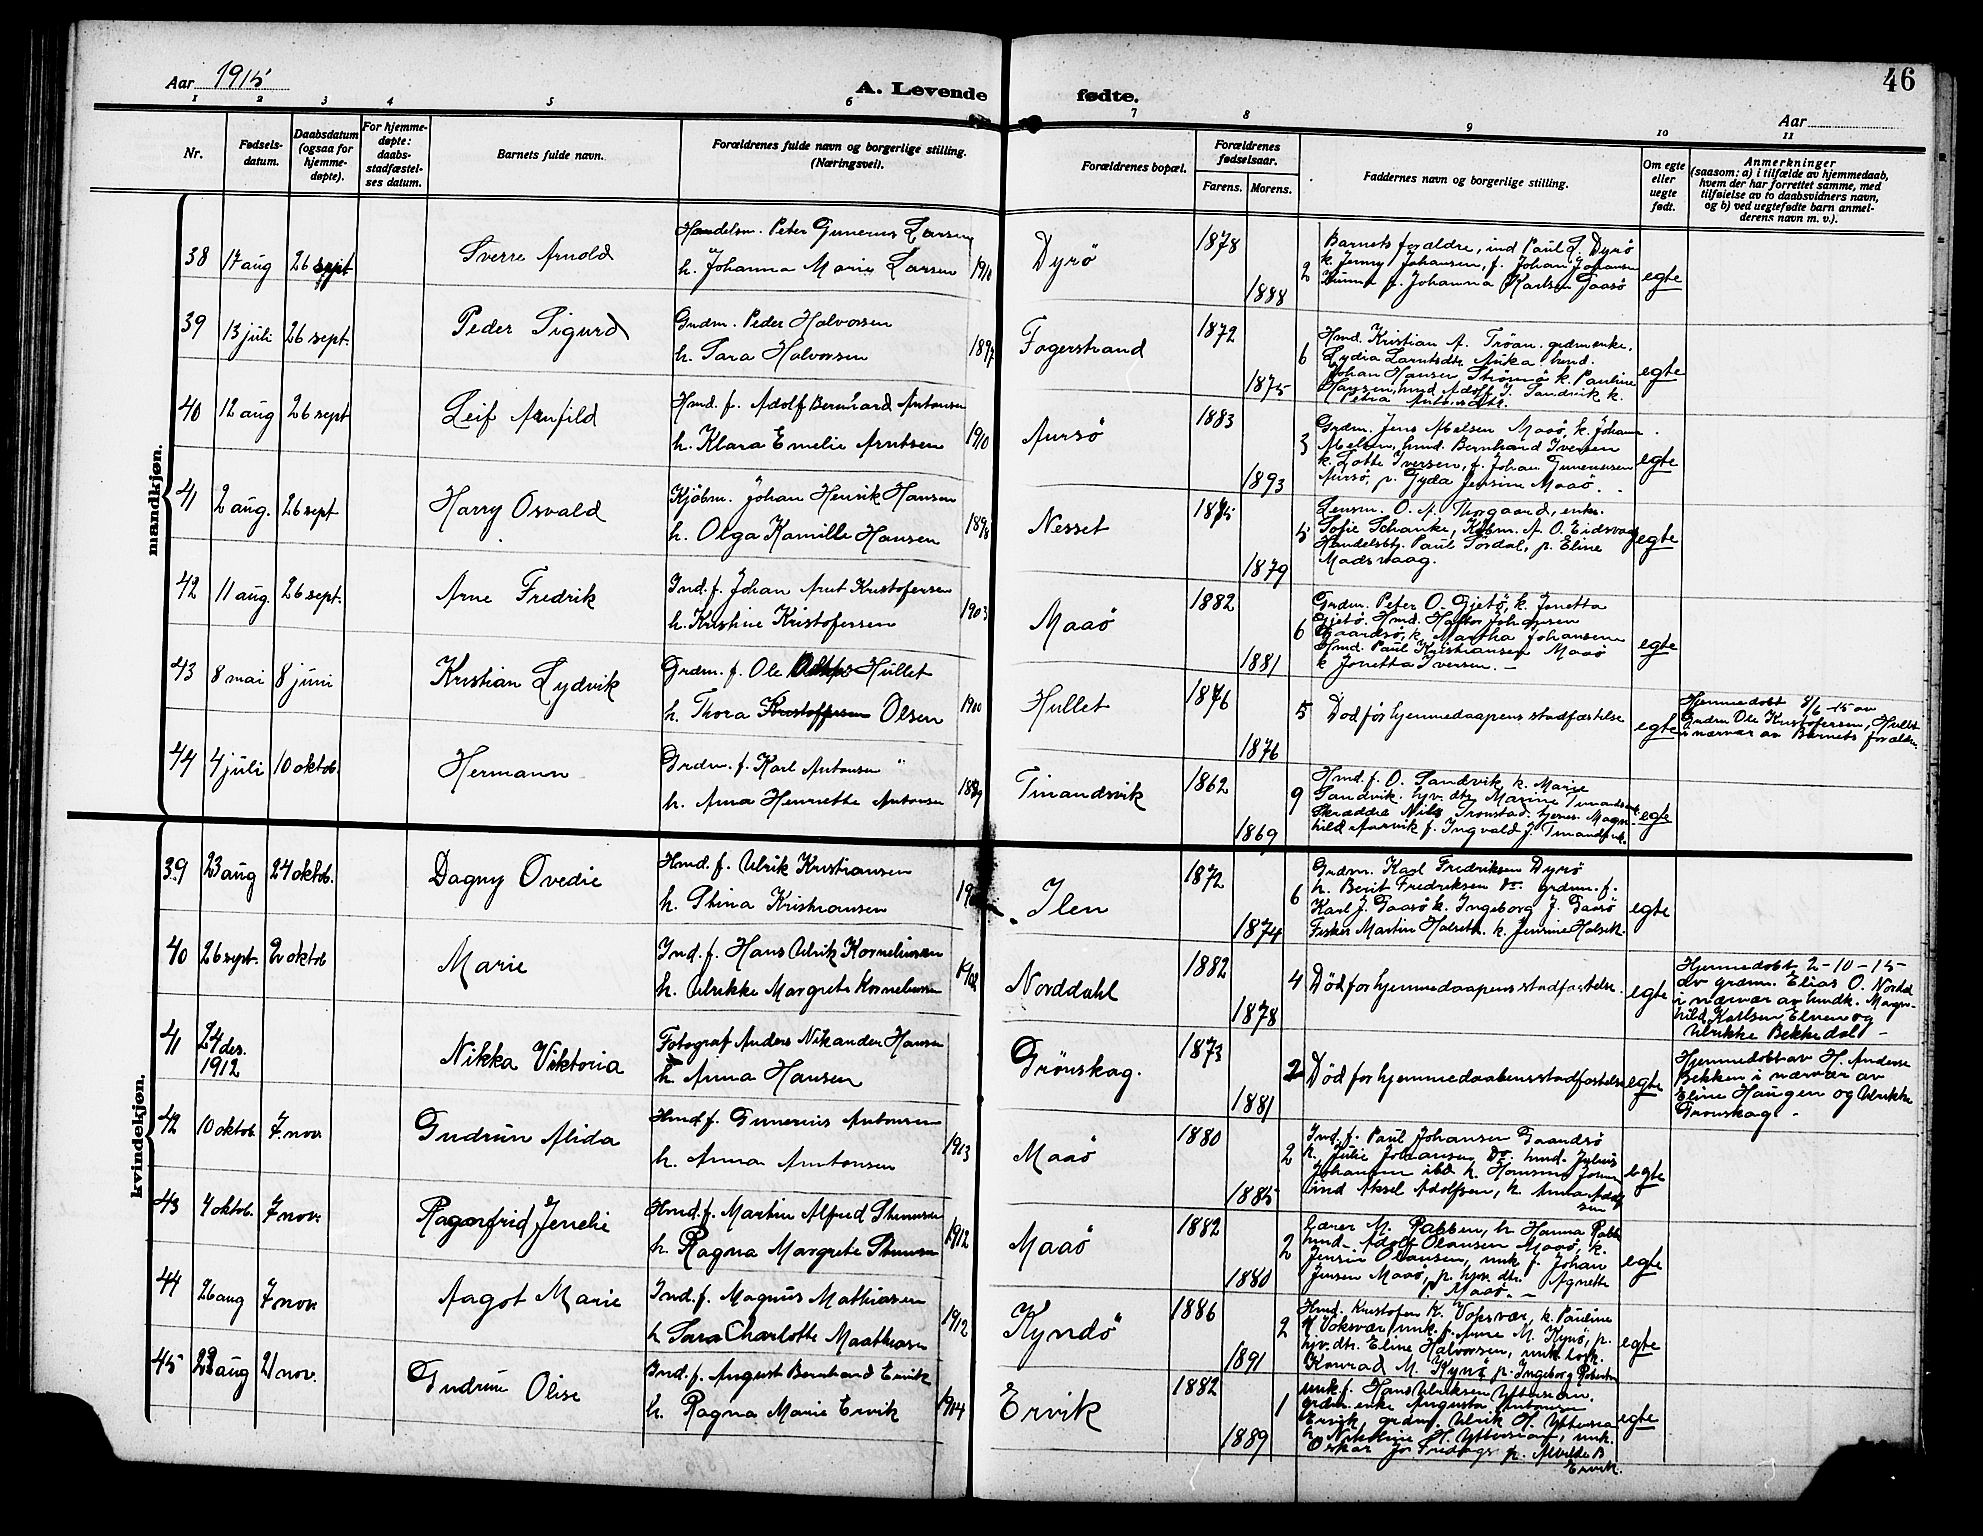 Aar 1915
A. Levende fødte.
46
Aar
1 2 3 4 5 6 7 8 9 10 11
Nr.
Fødsels-
datum.
Daabsdatum
(ogsaa for
hjemme-
døpte).
For hjemme-
døpte:
daabs-
stadfæstel-
ses datum.
Barnets fulde navn.
Forældrenes fulde navn og borgerlige stilling.
(Næringsvei).
Forældrenes bopæl.
Forældrenes
fødselsaar.
Farens. Morens.
Faddernes navn og borgerlige stilling.
Om egte
eller
uegte
født.
Anmerkninger
(saasom: a) i tilfælde av hjemmedaab,
hvem der har forrettet samme, med
tilføielse av to daabsvidners navn,
og b) ved uegtefødte barn anmel-
derens navn m. v.).
mandkjøn.
38 17 aug 26 sept Sverre Arnold
Handelsm. Peter Gunerius Larsen
h. Johanna Marie Larsen 1910
Dyrö 1878 1888 2
Barnets foraldre, ind Paul L. Dyrö
k. Jenny Johansen, f. Johan Johansen
p. Johanna Karlsen Gaasö
egte
39 13 juli 26 sept. Peder Sigurd
Grdm. Peder Halvorsen
h. Sara Halvorsen 1897
Fagerstrand 1872 1875 6
Hmd. Kristian A. Tröan. grdm enke.
Lydia Larntsdtr. hmd.
Johan Hansen Strömö k. Pauline
Hansen, hmd Adolf J. Sandvik k.
Petra
egte
40 12 aug 26 sept Leif Arnfild
Hmd. f. Adolf Bernhard Antonsen
h. Klara Emelie Arntsen 1910
Aursö 1883 1893 3
Grdm. Jens Melsen Maaö, k. Johan
Melsen, hmd. Bernhard Iversen
k. Lotte Iversen, f. Johan Gunerusen
Aursö, p. Gyda Jensine Maaö.
egte
41 2 aug. 26 sept Harry Osvald
Kjöbm. Johan Henrik Hansen
h. Olga Kamille Hansen 1898
Nesset 1875 1879 5
Lensm. O. A. Thorgaard, enke.
Sofie Schanke, Kjbm. A. O. Eidsvaag
Handelsbtj. Paul Sördal, p. Eline
Madsvaag.
egte
42 11 aug. 26 sept. Arne Fredrik
Ind. f. Johan Arnt Kristofersen
h. Kristine Kristofersen 1903
Maaö 1882 1881 6
Grdm. Peter O. Gjetö, k. Jonetta
Gjetö. Hmd. Johansen
Gaandsö, k. Martha Johansen
Hmd. Paul Kristiansen Maaö
k Jonetta Iversen. -
egte
43 8 mai 8 juni Kristian Lydvik
Grdm. f. Ole Hullet
h. Thora Kristoffersen Olsen 1900
Hullet 1876 1876 5
Död før hjemmedaapens stadfæstelse
egte
Hjemmedöbt 8/6 -15 av
Grdm Ole Kristofersen, Hullet
i nærvær av Barnets foraldre.
44 4 juli 10 oktob. Hermann
Grdm. f. Karl Antonsen
h. Anna Henriette Antonsen 1889
Tinandsvik 1862 1869 9
Hmd. f. O. Sandvik k. Marie
Sandvik hjv. dtr. Marine
Skrædder Nils Tronstad, hjems. Magn-
hild Aurvik f. Ingvald J
egte
kvindekjøn.
39 23 aug 24 oktob. Dagny Ovedie
Hmd. f. Ulrik Kristiansen
h. Stina Kristiansen
Ilen 1872 1874 6
Grdm. Karl Fredriksen Dyrö
h. Berit Fredriksen do. grdm. f.
Karl J. Gaasö k. Ingeborg J. Gaasö
Fisker Martin Holseth. k. Jensine Holseth.
egte
40 26 sept. 2 oktob Marie
Ind. f. Hans Ulrik Korneliussen
h. Ulrikke Margrete Korneliussen
Norddahl 1882 1878 4
Död for hjemmedaapens stadfæstelse.
egte
Hjemmedöbt 2-10-15-
av grdm. Elias O. Nordd
i nærvær av hmdk. Magn-
hild Karlsen Elven og
Ulrikke Bekkedal -
41 24 des. 1912 Nikka Viktoria
Fotograf Anders Nikander Hansen
h. Anna Hansen
Grönskag. 1873 1881 2
Död for hjemmedaabens stadfæstelse
egte
Hjemmedöbt av H. Anderse
Bekken i nærvær av
Eline Haugen og Ulrikke
Grönskag. -
42 10 oktob. 7 nov. Gudrun Alida
Hmd f. Gunerius Antonsen
h. Anna Antonsen 1913
Maaö 1880 1885 2
Ind. f. Paul Johansen Gaandsö
k. Julie Johansen, Do. hmd. Julius
Johansen ibd. k. Hansine Johan
ind Aksel Adolfsen, k. Anna Adolf
sen
egte
43 4 oktob. 7 nov. Ragnfrid Jenelie
Hmd. f. Martin Alfred Stenersen
h. Ragna Margrete Stenersen 1912
Maaö 1882 1880 2
Lærer M. Rabben, h Hanna Rabb
hmd. Adolf Olausen Maaö, k.
Jensin Olausen, unk. f. Johan
Jensen Maaö, p. hjv. dtr. Agnethe
p Maaö. -
egte
44 26 aug 7 nov. Aagot Marie
Ind. f. Magnus Mathiasen
h. Sara Charlotte Maathiasen 1912
Kyndö 1886 1891 2
Hmd. Kristofen K. Voksvær, k. Pauline
K Voksvær unk. f. Arne M. Kynö, p.
hjv. dtr. Eline Halvorsen, unk.
Konrad M. Kynö p. Ingeborg Robertsen
egte
45 22 aug 21 nov. Gudrun Olise
Ind. f. August Bernhard Ervik
h. Ragna Marie Ervik 1914
Ervik 1882 1889 1
unk f. Hans Ulriksen Ytterian.
grdm. enke Augusta Antonsen
Ervik, grdm. Ulrik H. Ytterian
h. Nikoline H. Ytterian, unk.
Oskar Joh Fredags p. Alvilde B
Ervik.
egte